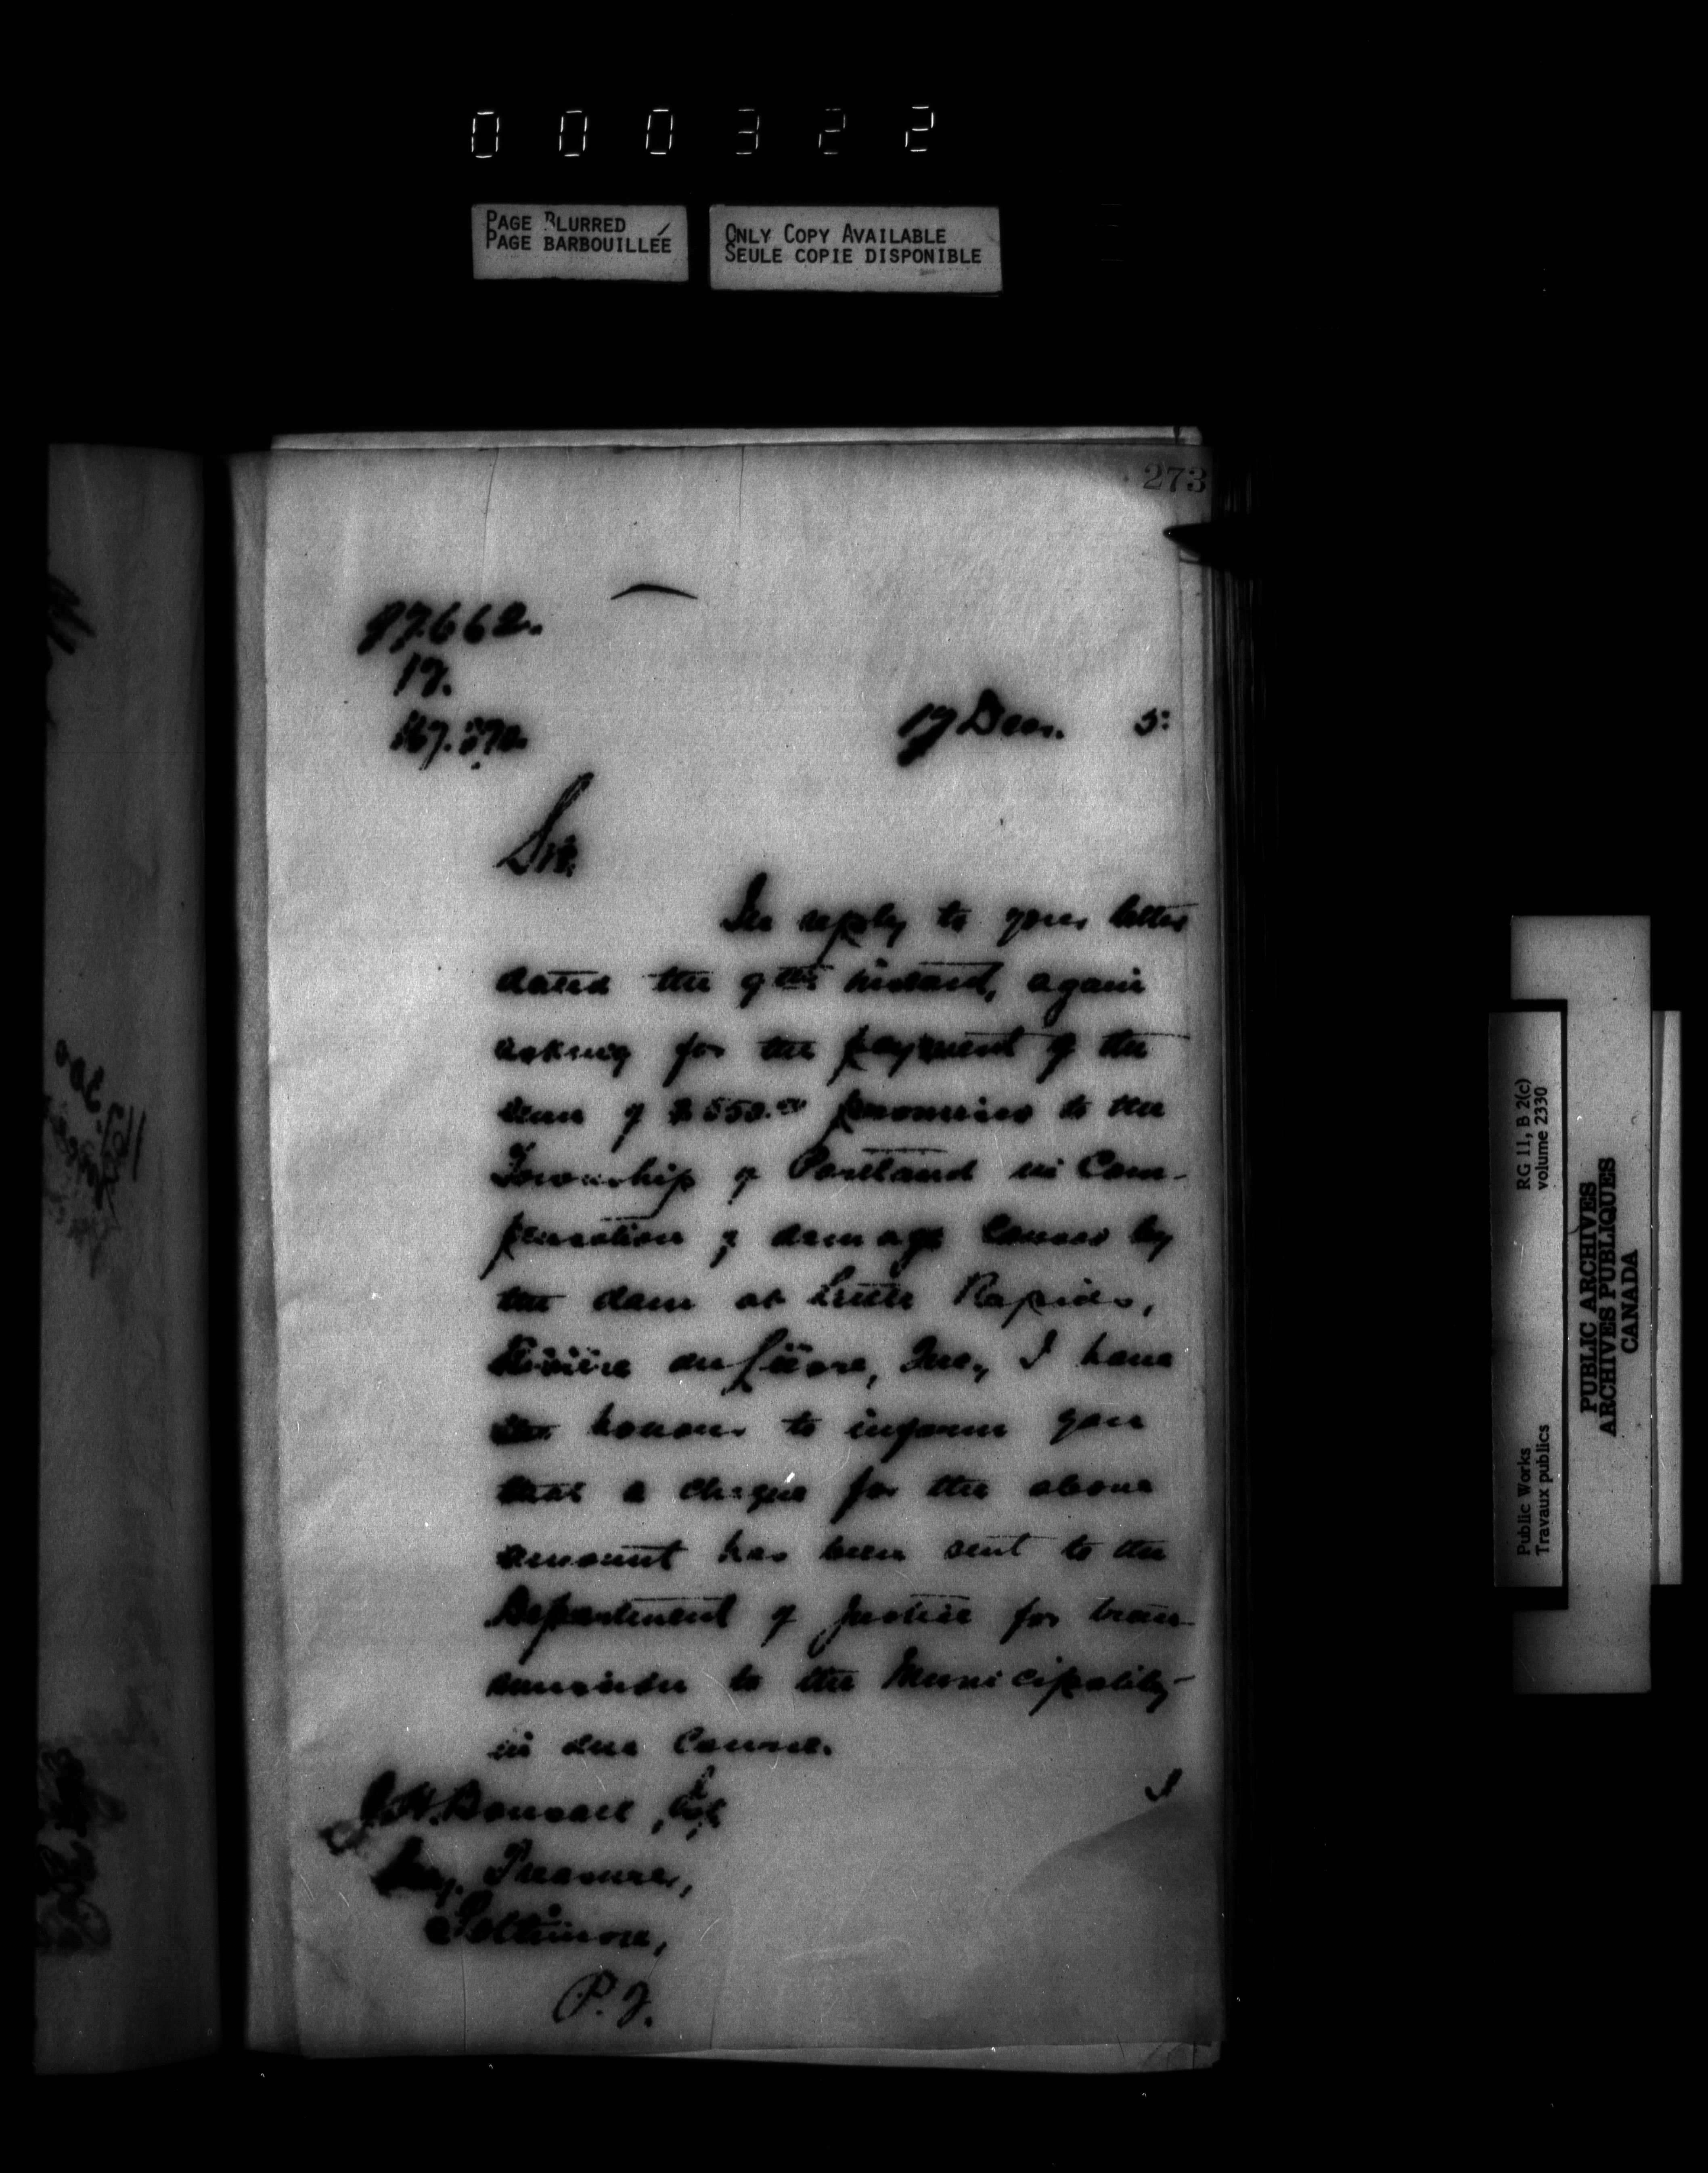 000322
PAGE BLURRED
PAGE BARBOUILLÉE
ONLY COPY AVAILABLE
SEULE COPIE DISPONIBLE
273
97.662.
17.
17 Decr. 5:
Sir.
In reply to your letter
dated the 9th instant, again
asking for the payment of the
sum of $550.00 promised to the
Township of Portland in Com-
pensation of damage caused by
the dam at Little Rapids,
Rivière du Lièvre, Que., I have
the honour to inform you
that a cheque for the above
amount has been sent to the
Department of Justice for trans-
mission to the Municipality
in due course.
I
J.H. Bonsall, Esq
Secy. Treasurer,
Poltimore,
P.Q.
RG 11, B 2(c)
volume 2330
Public Works
Travaux publics
PUBLIC ARCHIVES
ARCHIVES PUBLIQUES
CANADA